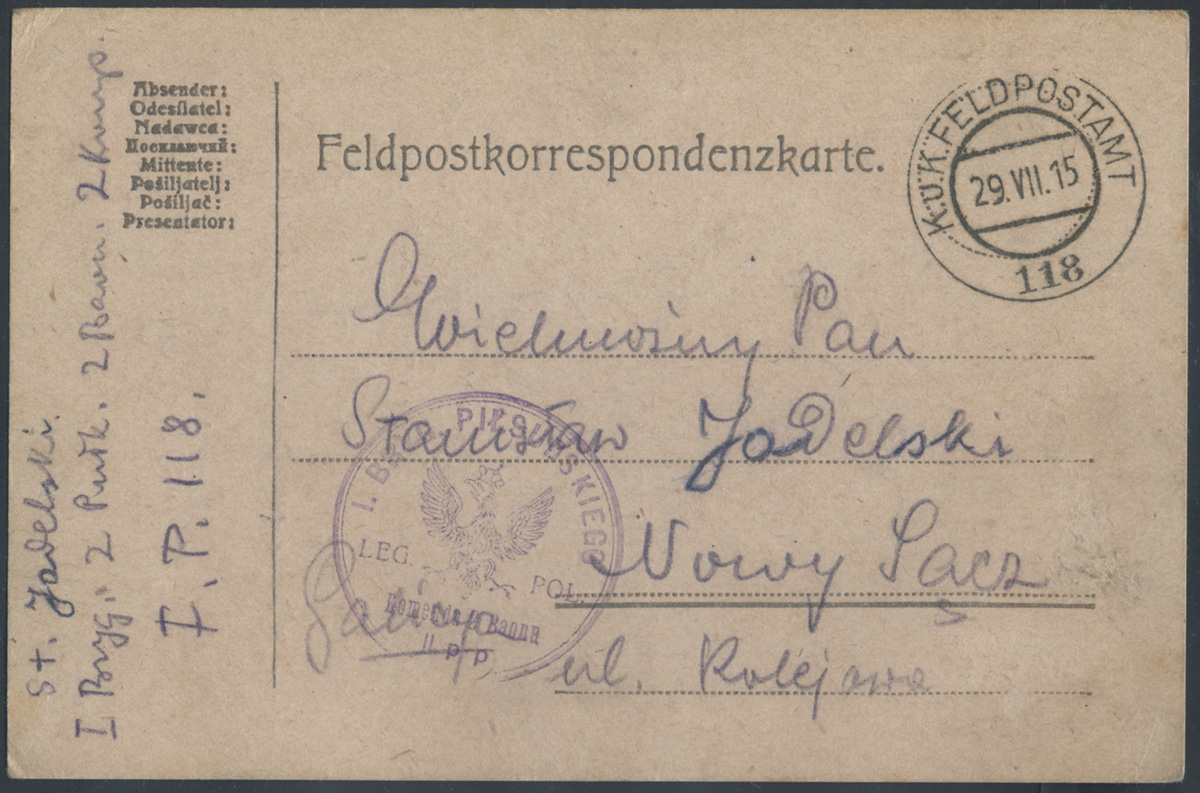 Absender:
Odesílatel:
Nadawca:
Посилаючий:
Mittente:
Pošiljatelj:
Pošiljač:
Presentator:
St. Jadelski.
I Bryg. 2 Pułk. 2 Baon. 2 Komp.
F. P. 118.
Feldpostkorrespondenzkarte.
K.u.K. FELDPOSTAMT
29.VII.15
118
Wielmożny Pan
Stanisław Jadelski
Nowy Sącz
ul. Kolejowa
I. BRYG. PIŁSUDSKIEGO
LEG. POL.
Komenda Baonu
II p p